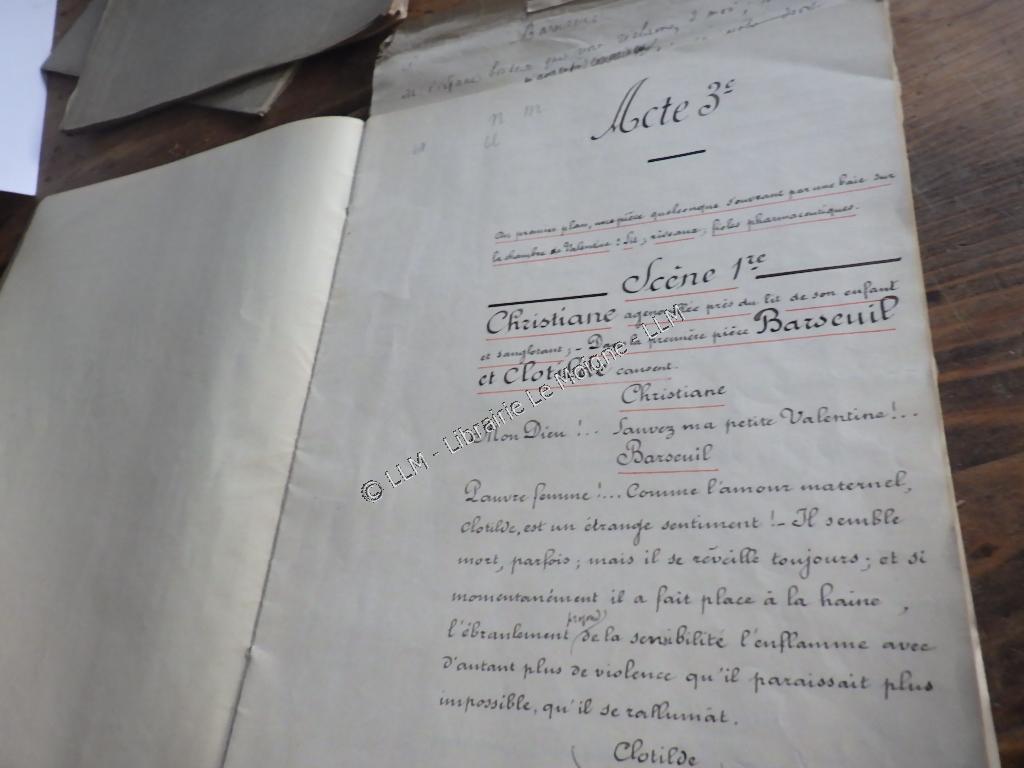 Barseuil
Acte 3e
Au premier plan, une pièce quelconque s'ouvrant par une baie sur
la chambre de Valentine : Lit ; rideaux ; fioles pharmaceutiques.
Scène 1re
Christiane agenouillée près du lit de son enfant
et sanglotant ; - Dans la première pièce Barseuil
et Clotilde causent.
Christiane
Mon Dieu !.. Sauvez ma petite Valentine !..
Barseuil
Pauvre femme !... Comme l'amour maternel,
Clotilde, est un étrange sentiment ! - Il semble
mort, parfois ; mais il se réveille toujours ; et si
momentanément il a fait place à la haine,
profond
l'ébranlement de la sensibilité l'enflamme avec
d'autant plus de violence qu'il paraissait plus
impossible, qu'il se rallumât.
Clotilde
© LLM - Librairie Le Moigne - LLM